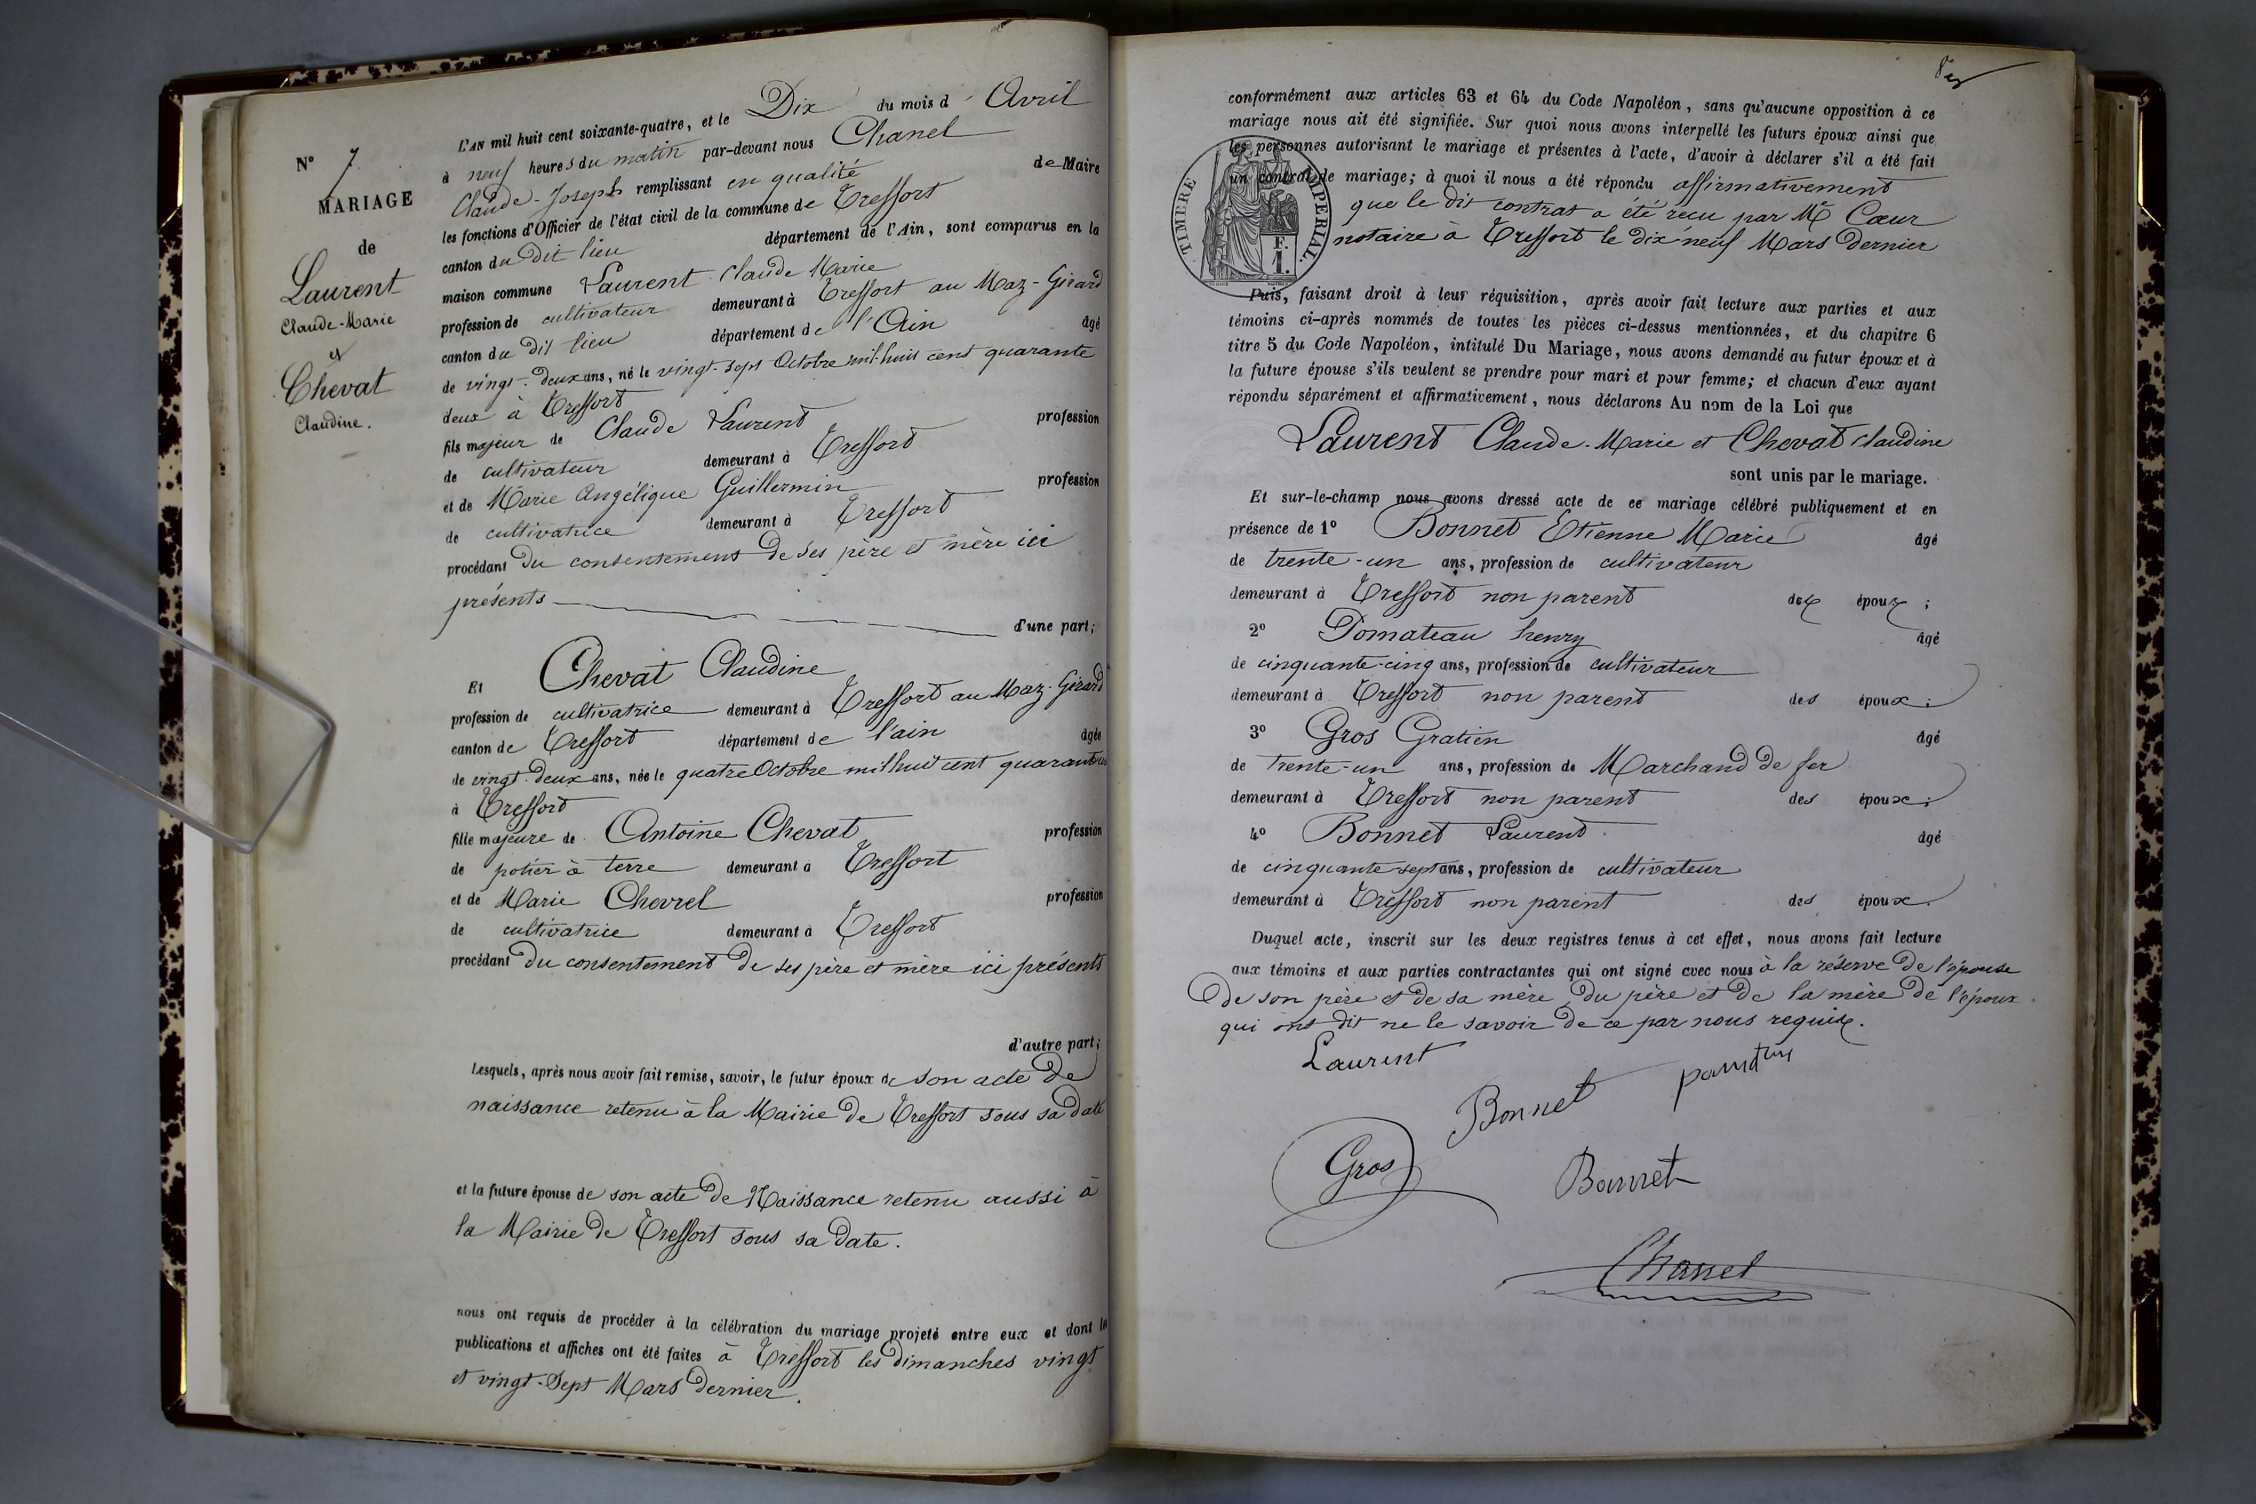 N° 7
MARIAGE
de
Laurent
Claude-Marie
et
Chevat
Claudine.
L'AN mil huit cent soixante-quatre, et le Dix du mois d'Avril
à neuf heures du matin par-devant nous Chanel
Claude-Joseph remplissant en qualité de Maire
les fonctions d'Officier de l'état civil de la commune de Treffort
canton du dit lieu département de l'Ain, sont comparus en la
maison commune Laurent Claude Marie
profession de cultivateur demeurant à Treffort au Maz-Girard
canton du dit lieu département de l'Ain âgé
de vingt-deux ans, né le vingt-sept Octobre mil-huit cent quarante
deux à Treffort
fils majeur de Claude Laurent profession
de cultivateur demeurant à Treffort
et de Marie Angélique Guillermin profession
de cultivatrice demeurant à Treffort
procédant du consentement de ses père et mère ici
présents d'une part;
Et Chevat Claudine
profession de cultivatrice demeurant à Treffort au Maz-Girard
canton de Treffort département de l'ain âgée
de vingt-deux ans, née le quatre Octobre mil huit cent quarante un
à Treffort
fille majeure de Antoine Chevat profession
de potier à terre demeurant à Treffort
et de Marie Chevrel profession
de cultivatrice demeurant à Treffort
procédant du consentement de ses père et mère ici présents
d'autre part;
Lesquels, après nous avoir fait remise, savoir, le futur époux de son acte de
naissance retenu à la Mairie de Treffort sous sa date
et la future épouse de son acte de Naissance retenu aussi à
la Mairie de Treffort sous sa date.
nous ont requis de procéder à la célébration du mariage projeté entre eux et dont les
publications et affiches ont été faites à Treffort les dimanches vingt
et vingt-Sept Mars dernier.
conformément aux articles 63 et 64 du Code Napoléon, sans qu'aucune opposition à ce
mariage nous ait été signifiée. Sur quoi nous avons interpellé les futurs époux ainsi que
les personnes autorisant le mariage et présentes à l'acte, d'avoir à déclarer s'il a été fait
un contrat de mariage; à quoi il nous a été répondu affirmativement
que le dit contrat a été reçu par Me Cœur
notaire à Treffort le dix neuf Mars dernier
TIMBRE IMPERIAL.
F.
1.
Puis, faisant droit à leur réquisition, après avoir fait lecture aux parties et aux
témoins ci-après nommés de toutes les pièces ci-dessus mentionnées, et du chapitre 6
titre 5 du Code Napoléon, intitulé Du Mariage, nous avons demandé au futur époux et à
la future épouse s'ils veulent se prendre pour mari et pour femme; et chacun d'eux ayant
répondu séparément et affirmativement, nous déclarons Au nom de la Loi que
Laurent Claude-Marie et Chevat Claudine
sont unis par le mariage.
Et sur-le-champ nous avons dressé acte de ce mariage célébré publiquement et en
présence de 1° Bonnet Etienne Marie âgé
de trente-un ans, profession de cultivateur
demeurant à Treffort non parent des époux;
2° Pomateau henry âgé
de cinquante-cinq ans, profession de cultivateur
demeurant à Treffort non parent des époux;
3° Gros Gratien âgé
de trente-un ans, profession de Marchand de fer
demeurant à Treffort non parent des époux;
4° Bonnet Laurent âgé
de cinquante sept ans, profession de cultivateur
demeurant à Treffort non parent des époux.
Duquel acte, inscrit sur les deux registres tenus à cet effet, nous avons fait lecture
aux témoins et aux parties contractantes qui ont signé avec nous à la réserve de l'épouse
de son père et de sa mère, du père et de la mère de l'époux
qui ont dit ne le savoir de ce par nous requis.
Laurent
Bonnet
Gros
Bonnet
Chanel